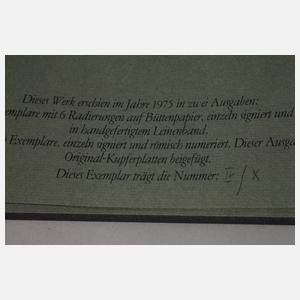 Dieses Werk erschien im Jahre 1975 in zwei Ausgaben:
emplare mit 6 Radierungen auf Büttenpapier, einzeln signiert und
in handgefertigtem Leinenband.
Exemplare, einzeln signiert und römisch numeriert. Dieser Ausga
Original-Kupferplatten beigefügt.
Dieses Exemplar trägt die Nummer: IV/X